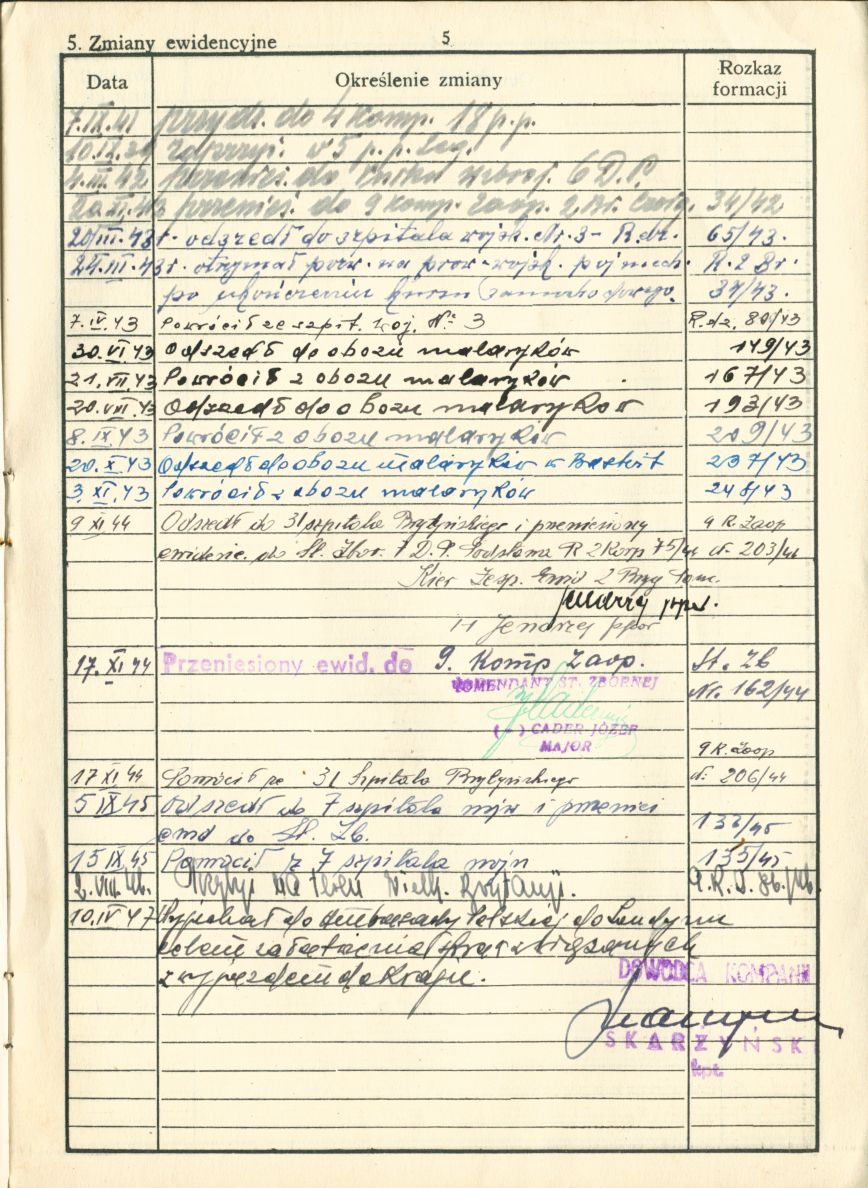 5. Zmiany ewidencyjne 5
Data Określenie zmiany Rozkaz formacji
7.IX.41 przydz. do 4 komp. 18 p.p.
10.IX. v 5 p.p. Leg.
4.III.42 do 6 D.P.
przenieś. do 9 komp. zaop. 2 Br. Czołg. 34/42
20/III.43r. odszedł do szpitala wojsk. Nr. 3 - R.dz. 65/43.
24.III.43r. otrzymał pozw. na prow. wojsk. poj. mech. R. 2 Br.
po ukończeniu kursu samochodowego. 34/43.
7.IV.43 Powrócił ze szpit. woj. Nº 3 R.dz. 80/43
30.VI.43 Odszedł do obozu malaryków 149/43
21.VII.43 Powrócił z obozu malaryków 167/43
20.VIII.43 Odszedł do obozu malaryków 193/43
8.IX.43 Powrócił z obozu malaryków 209/43
20.X.43 Odszedł do obozu malaryków w 237/43
3.XI.43 Powrócił z obozu malaryków 248/43
9 XI 44 Odszedł do 31 szpitala Brytyjskiego i przeniesiony 9 K. Zaop
ewidenc. do St. Zbor. 7 D.P. Podstawa R 2 Korp 75/44 d. 203/44
Kier Zesp. Ewid 2 Bryg
Jendrzej ppor.
H Jendrzej ppor
17.XI 44 Przeniesiony ewid. do 9. Komp Zaop. St. Zb
KOMENDANT ST. ZBORNEJ Nr. 162/44
(-) CADER JÓZEF
MAJOR
9 K. Zaop
17 XI 44 Powrócił ze 31 Szpitala Brytyjskiego d. 206/44
5 IX 45 Odszedł do 7 szpitala woj. i przenieś
ewid do St. Zb. 133/45
15 IX 45 Powrócił z 7 szpitala wojn 135/45
2.VIII.46. Przybył na teren Wielk. Brytanji.
10.IV 47 Wyjechał do Ambasady Polskiej do Londynu
celem załatwienia spraw związanych
z wyjazdem do Kraju.
DOWÓDCA KOMPANII
SKARŻYŃSKI
kpt.